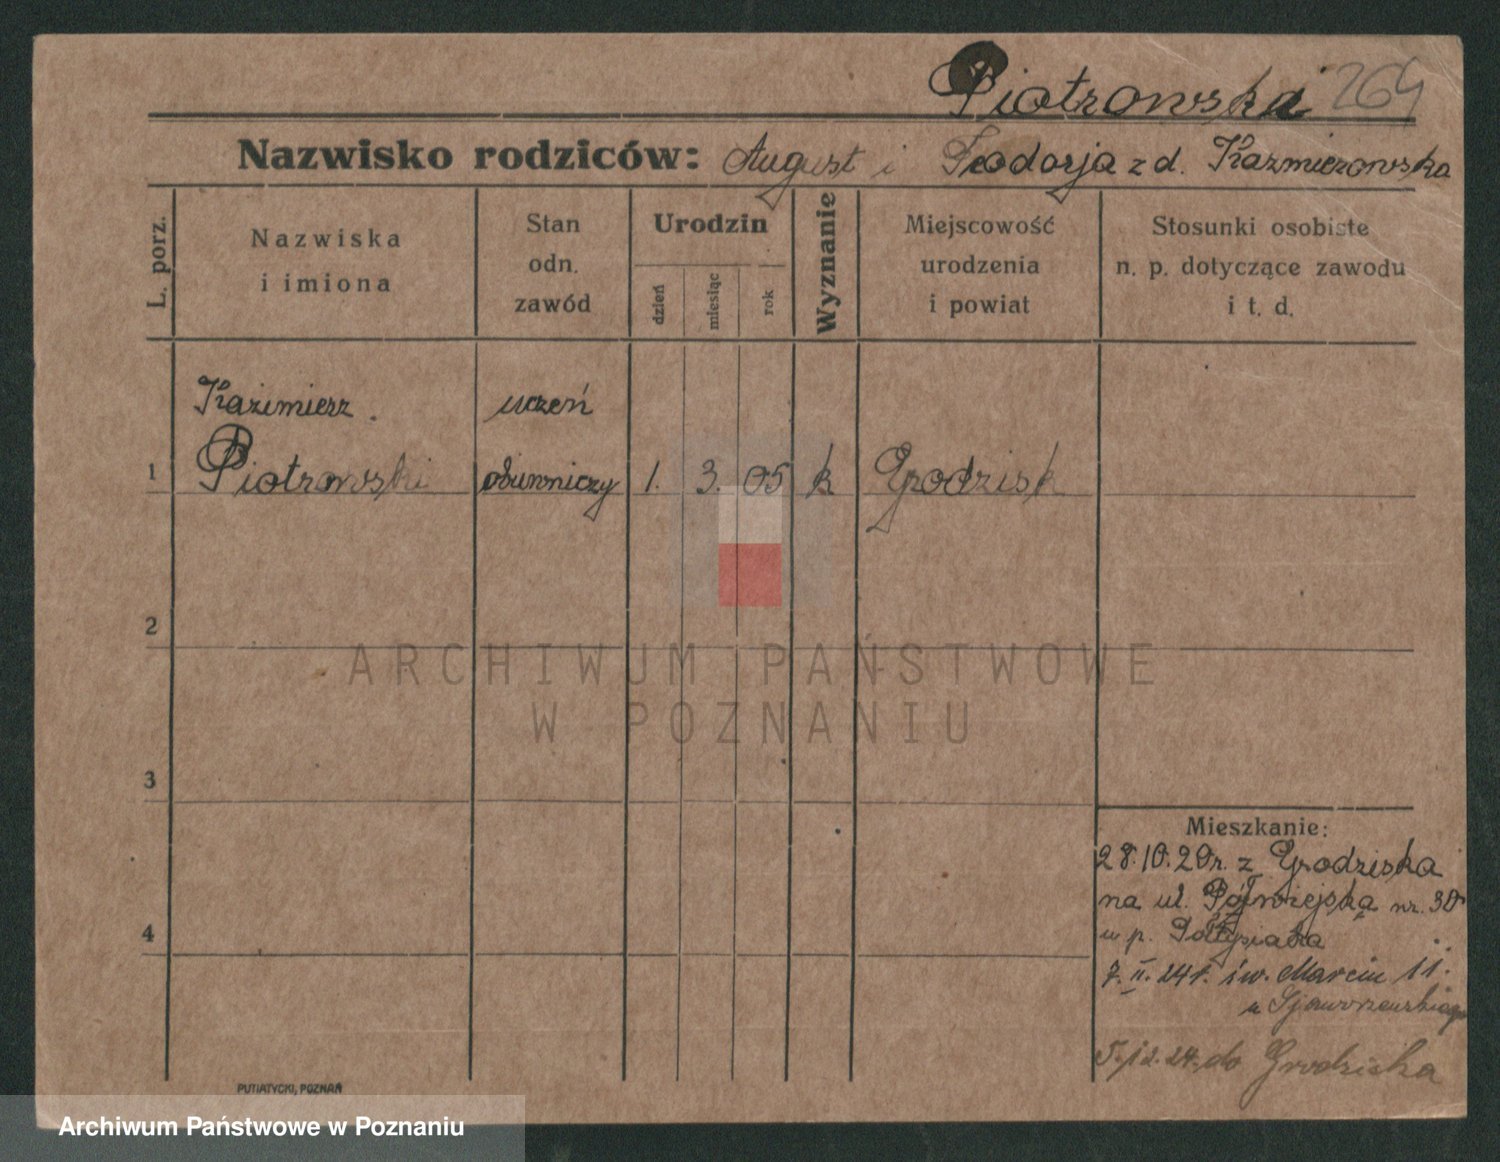 Piotrowska 264
Nazwisko rodziców: August i Teodorja z d. Kazmierowska
L. porz.
Nazwiska
i imiona
Stan
odn.
zawód
Urodzin
dzień
miesiąc
rok
Wyznanie
Miejscowość
urodzenia
i powiat
Stosunki osobiste
n. p. dotyczące zawodu
i t. d.
Kazimierz uczeń
1 Piotrowski obuwniczy 1. 3. 05 k Grodzisk
2
ARCHIWUM PAŃSTWOWE
W POZNANIU
3
4
Mieszkanie:
28.10.20r. z Grodziska
na ul. Półwiejska nr. 30
u p.
7.II.24r. św. Marcin 11.
u
5.12.24. do Grodziska
PUTIATYCKI, POZNAŃ
Archiwum Państwowe w Poznaniu